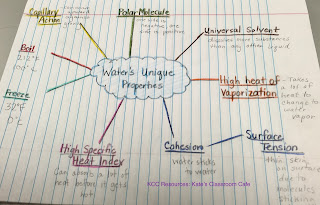 Capillary
Action
Polar Molecule
one side is
negative one
side is positive
Universal Solvent
dissolves more substances
than any other liquid
Boil
212°F
100°C
Water's Unique
Properties
High heat of
Vaporization
- Takes
a lot of
heat to
change to
water
vapor
Freeze
32°F
0°C
High Specific
Heat Index
Can absorb a lot of
heat before it gets
hot
Cohesion
water sticks
to water
Surface
Tension
thin skin
on surface
due to
molecules
sticking
KCC Resources: Kate's Classroom Cafe